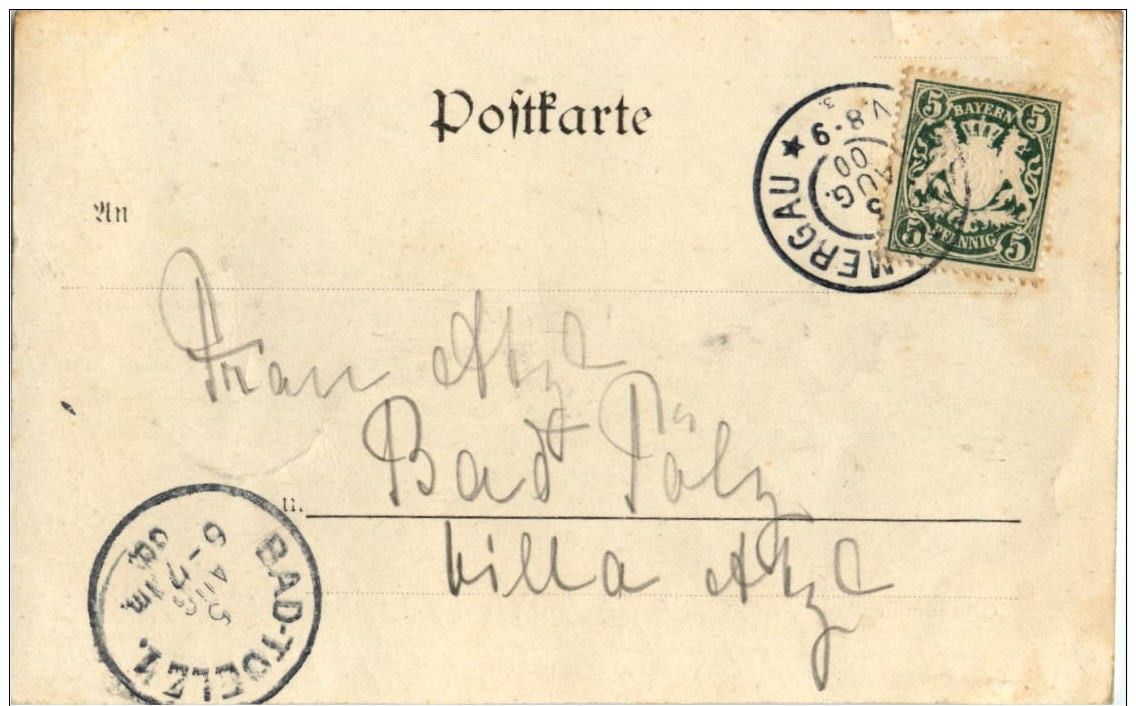 Postkarte
5 BAYERN 5
5 PFENNIG 5
MERGAU ★
V. 8-9
5 AUG.
00
An
Frau Atzl
Bad Tölz
Villa Atzl
BAD-TOELZ 1.
5
AUG
6-7
00